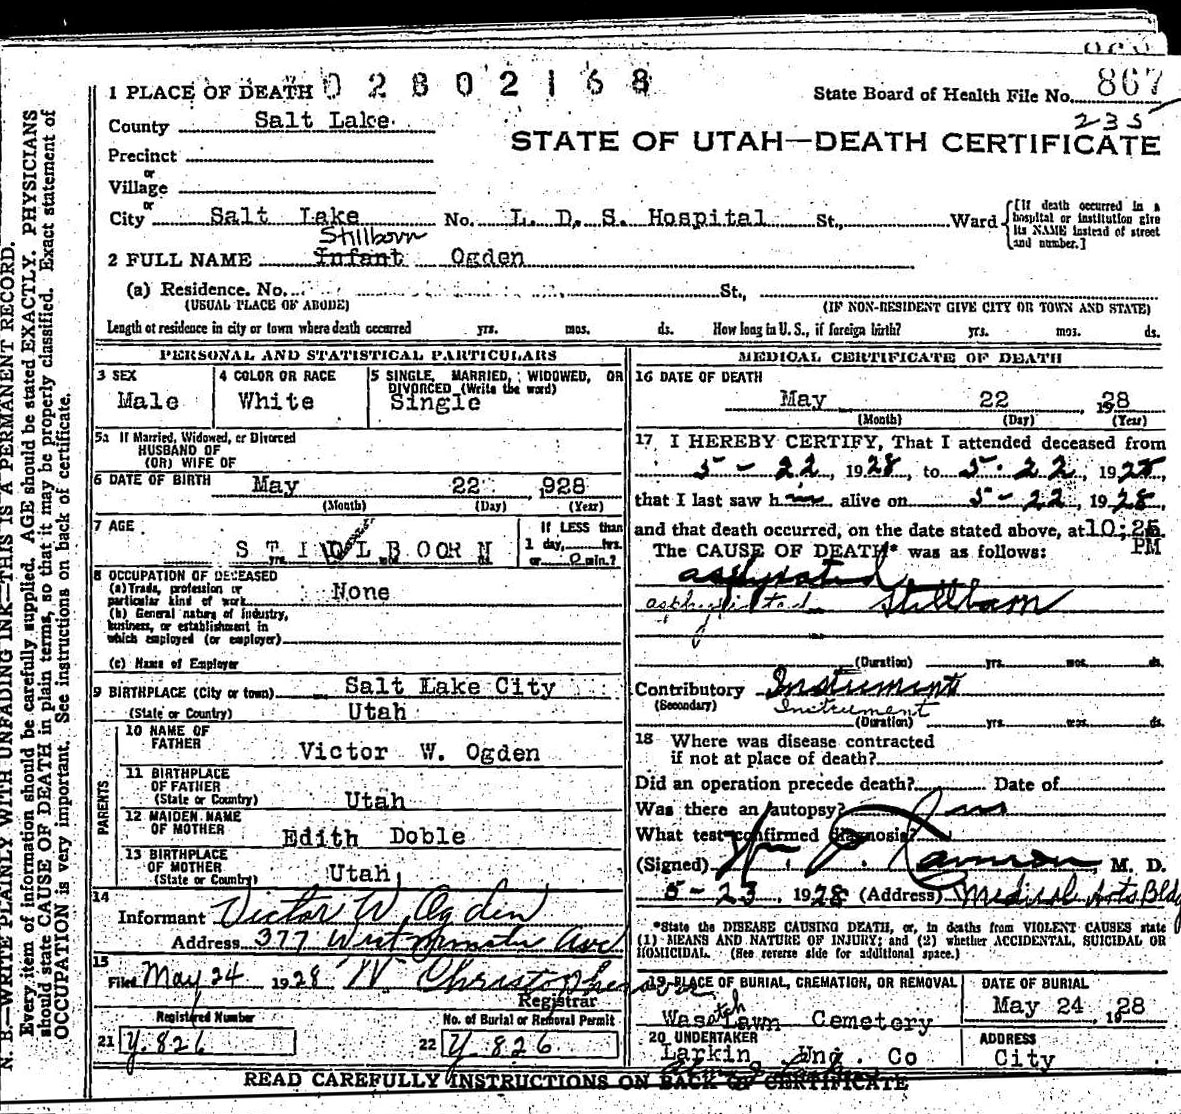 867
235
1 PLACE OF DEATH 02802168 State Board of Health File No. 867
County Salt Lake
STATE OF UTAH—DEATH CERTIFICATE
Precinct
or
Village
or
City Salt Lake No. L. D. S. Hospital St., Ward {[If death occurred in a hospital or institution give its NAME instead of street and number.]
Stillborn
2 FULL NAME Infant Ogden
(a) Residence. No. St.,
(USUAL PLACE OF ABODE) (IF NON-RESIDENT GIVE CITY OR TOWN AND STATE)
Length of residence in city or town where death occurred yrs. mos. ds. How long in U. S., if foreign birth? yrs. mos. ds.
PERSONAL AND STATISTICAL PARTICULARS
3 SEX
Male
4 COLOR OR RACE
White
5 SINGLE, MARRIED, WIDOWED, OR DIVORCED (Write the word)
Single
5a If Married, Widowed, or Divorced
HUSBAND OF
(OR) WIFE OF
6 DATE OF BIRTH May 22 1928
(Month) (Day) (Year)
7 AGE
STILLBORN
yrs. mos. ds.
If LESS than
1 day, hrs.
or 0 min.?
8 OCCUPATION OF DECEASED
(a) Trade, profession or
particular kind of work None
(b) General nature of industry,
business, or establishment in
which employed (or employer)
(c) Name of Employer
9 BIRTHPLACE (City or town) Salt Lake City
(State or Country) Utah
PARENTS
10 NAME OF
FATHER Victor W. Ogden
11 BIRTHPLACE
OF FATHER
(State or Country) Utah
12 MAIDEN NAME
OF MOTHER Edith Doble
13 BIRTHPLACE
OF MOTHER
(State or Country) Utah
14
Informant Victor W. Ogden
Address 377 Ave
15
Filed May 24 1928 W Christopherson
Registrar
Registered Number
21 Y.826
No. of Burial or Removal Permit
22 Y.826
MEDICAL CERTIFICATE OF DEATH
16 DATE OF DEATH
May 22, 1928
(Month) (Day) (Year)
17 I HEREBY CERTIFY, That I attended deceased from
5-22, 1928, to 5-22, 1928,
that I last saw him alive on 5-22, 1928,
and that death occurred, on the date stated above, at 10:25
PM
The CAUSE OF DEATH* was as follows:
asphyxiated
asphyxiated Stillborn
(Duration) yrs. mos. ds.
Contributory Instrument
(Secondary) Instrument
(Duration) yrs. mos. ds.
18 Where was disease contracted
if not at place of death?
Did an operation precede death? Date of
Was there an autopsy?
What test confirmed diagnosis?
(Signed) Wm M. D.
5-23, 1928 (Address) Medical Arts Bldg
*State the DISEASE CAUSING DEATH, or, in deaths from VIOLENT CAUSES state
(1) MEANS AND NATURE OF INJURY; and (2) whether ACCIDENTAL, SUICIDAL OR
HOMICIDAL. (See reverse side for additional space.)
19 PLACE OF BURIAL, CREMATION, OR REMOVAL
Wasatch Lawn Cemetery
DATE OF BURIAL
May 24, 1928
20 UNDERTAKER
Larkin Und. Co
ADDRESS
City
READ CAREFULLY INSTRUCTIONS ON BACK OF CERTIFICATE
N. B.—WRITE PLAINLY WITH UNFADING INK—THIS IS A PERMANENT RECORD.
Every item of information should be carefully supplied. AGE should be stated EXACTLY. PHYSICIANS
should state CAUSE OF DEATH in plain terms, so that it may be properly classified. Exact statement of
OCCUPATION is very important. See instructions on back of certificate.